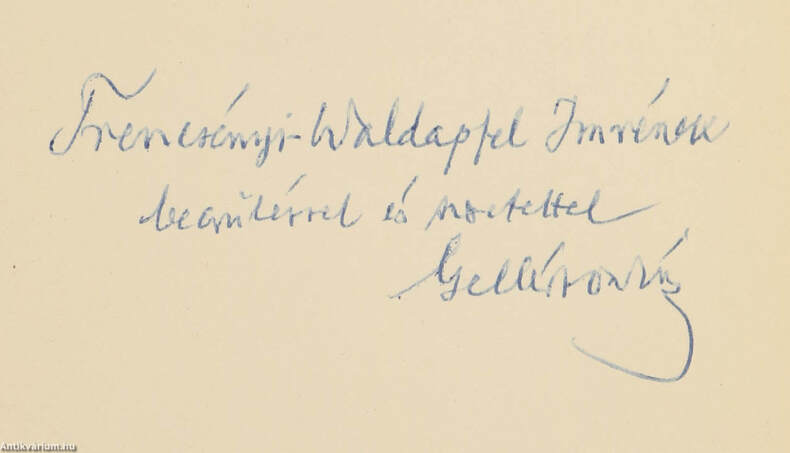 Trencsényi-Waldapfel Imrének
becsüléssel és szeretettel
Gellért Oszkár
Antikvárium.hu